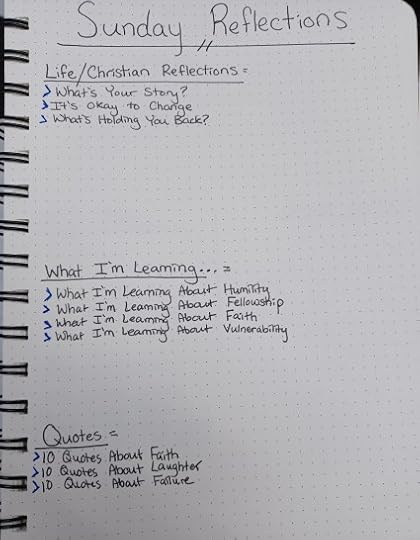 Sunday Reflections
Life/Christian Reflections =
> What's Your Story?
> It's Okay to Change
> What's Holding You Back?
What I'm Learning... =
> What I'm Learning About Humility
> What I'm Learning About Fellowship
> What I'm Learning About Faith
> What I'm Learning About Vulnerability
Quotes =
> 10 Quotes About Faith
> 10 Quotes About Laughter
> 10 Quotes About Failure